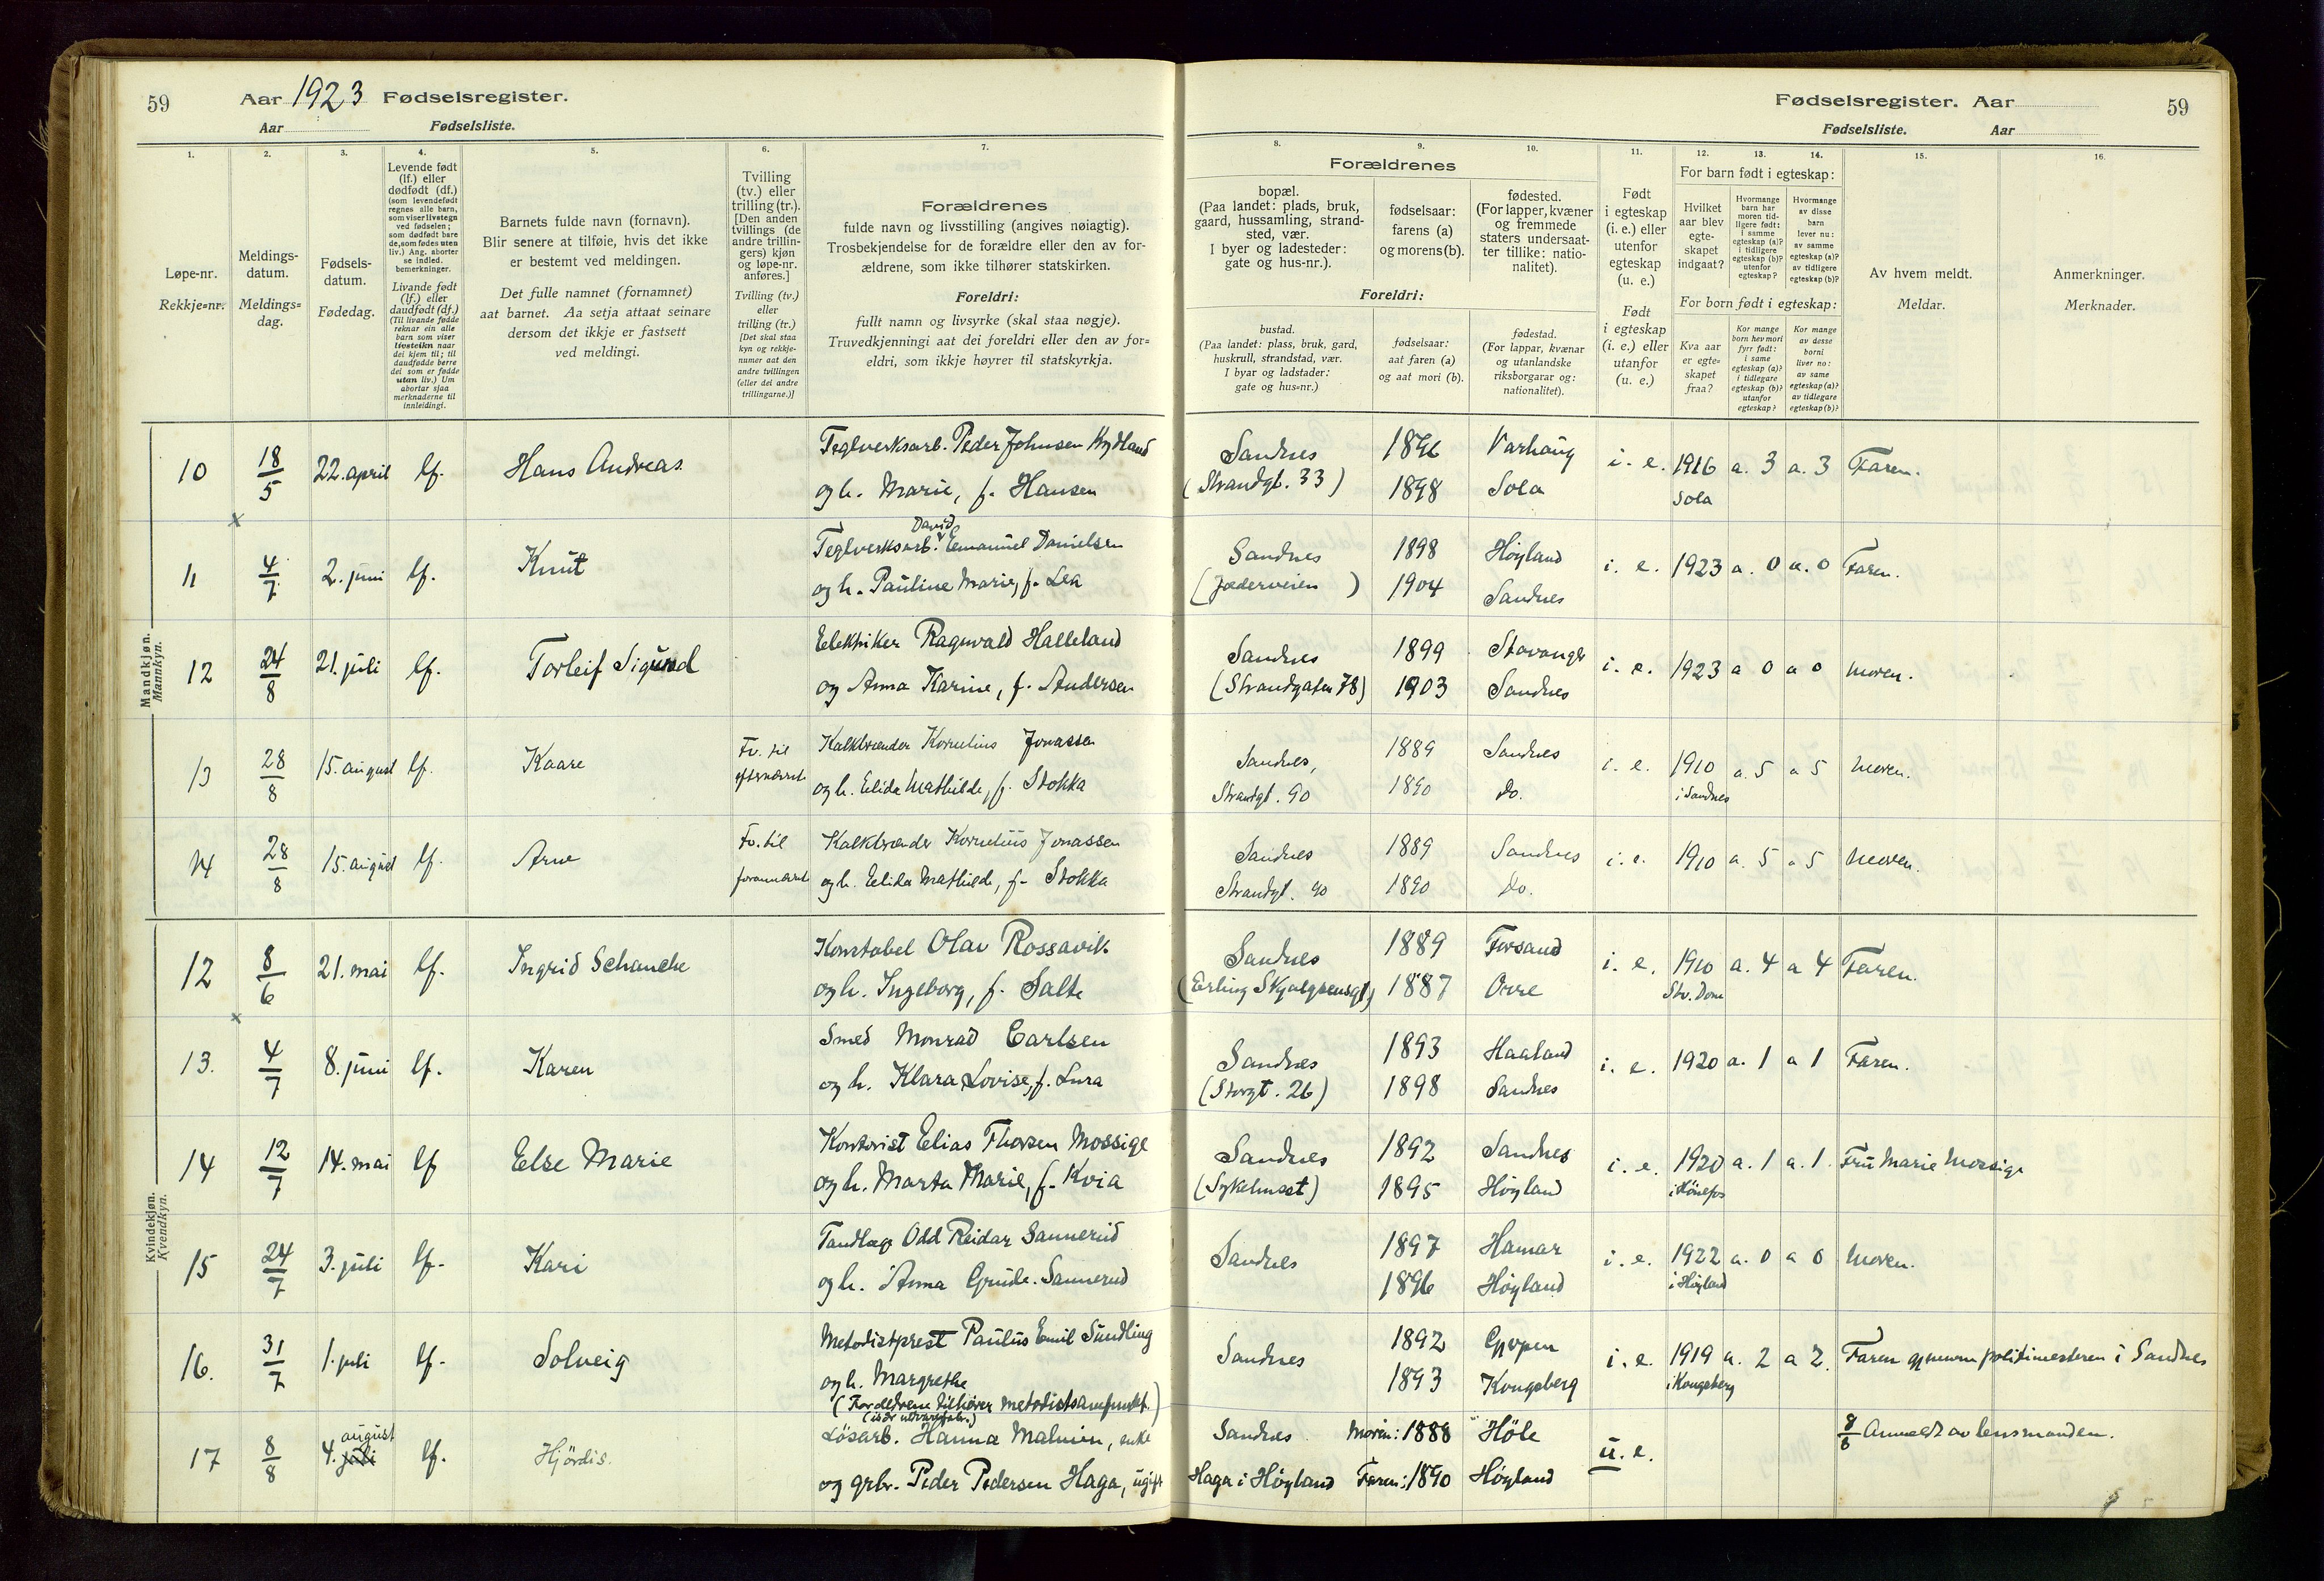 59 Aar 1923 Fødselsregister.
Aar Fødselsliste.
Fødselsregister. Aar 59
Fødselsliste. Aar
1. 2. 3. 4. 5. 6. 7. 8. 9. 10. 11. 12. 13. 14. 15. 16.
Løpe-nr.
Rekkje=nr.
Meldings-
datum.
Meldings=
dag.
Fødsels-
datum.
Fødedag.
Levende født
(lf.) eller
dødfødt (df.)
(som levendefødt
regnes alle barn,
som viser livstegn
ved fødselen;
som dødfødt bare
de, som fødes uten
liv.) Ang. aborter
se indled.
bemerkninger.
Livande født
(lf.) eller
daudfødt (df.)
(Til livande fødde
reknar ein alle
barn som viser
livsteikn naar
dei kjem til; til
daudfødde berre
dei som er fødde
utan liv.) Um
abortar sjaa
merknaderne til
innleidingi.
Barnets fulde navn (fornavn).
Blir senere at tilføie, hvis det ikke
er bestemt ved meldingen.
Det fulle namnet (fornamnet)
aat barnet. Aa setja attaat seinare
dersom det ikkje er fastsett
ved meldingi.
Tvilling
(tv.) eller
trilling (tr.).
[Den anden
tvillings (de
andre trillin-
gers) kjøn
og løpe-nr.
anføres.]
Tvilling (tv.)
eller
trilling (tr.)
[Det skal staa
kyn og rekkje-
numer aat den
andre tvillingen
(eller dei andre
trillingarne.)]
Forældrenes
fulde navn og livsstilling (angives nøiagtig).
Trosbekjendelse for de forældre eller den av for-
ældrene, som ikke tilhører statskirken.
Foreldri:
fullt namn og livsyrke (skal staa nøgje).
Truvedkjenningi aat dei foreldri eller den av for=
eldri, som ikkje høyrer til statskyrkja.
Forældrenes
bopæl.
(Paa landet: plads, bruk,
gaard, hussamling, strand-
sted, vær.
I byer og ladesteder:
gate og hus-nr.).
fødselsaar:
farens (a)
og morens (b).
fødested.
(For lapper, kvæner
og fremmede
staters undersaat-
ter tillike: natio-
nalitet).
Foreldri:
bustad.
(Paa landet: plass, bruk, gard,
huskrull, strandstad, vær.
I byar og ladstader:
gate og hus=nr.)
fødselsaar:
aat faren (a)
og aat mori (b).
fødestad.
(For lappar, kvænar
og utanlandske
riksborgarar og:
nationalitet).
Født
i egteskap
(i. e.) eller
utenfor
egteskap
(u. e.)
Født
i egteskap
(i. e.) eller
utanfor
(u. e.)
For barn født i egteskap:
Hvilket
aar blev
egte-
skapet
indgaat?
Hvormange
barn har
moren tid-
ligere født:
i samme
egteskap (a)?
i tidligere
egteskap (b)?
utenfor
egteskap?
Hvormange
av disse
barn
lever nu:
av samme
egteskap (a)?
av tidligere
egteskap (b)?
For born født i egteskap:
Kva aar
er egte=
skapet
fraa?
Kor mange
born hev mori
fyrr født:
i same
egteskap (a)?
i tidlegare
egteskap (b)?
utanfor
egteskap?
Kor mange
av desse
borni
liver no:
av same
egteskap (a)?
av tidlegare
egteskap (b)?
Av hvem meldt.
Meldar.
Anmerkninger.
Merknader.
Mandkjøn.
Mannkyn.
10 18/5 22. april lf. Hans Andreas Teglverksarb. Peder Johnsen Kydland
og h. Marie, f. Hansen
Sandnes 1896 Varhaug i. e. 1916 a. 3 a. 3 Faren.
(Strandgt. 33) 1898 Sola Sola
11 4/7 2. juni lf. Knut David
Teglverksarb. Emanuel Danielsen
og h. Pauline Marie, f. Lea
Sandnes 1898 Høyland i. e. 1923 a. 0 a. 0 Faren.
(Jæderveien ) 1904 Sandnes
12 24/8 21. juli lf. Torleif Sigurd Elektriker Ragnvald Halleland
og Anna Karine, f. Andersen
Sandnes 1899 Stavanger i. e. 1923 a 0 a 0 Moren.
(Strandgaten 78) 1903 Sandnes
13 28/8 15. august lf. Kaare Tv. til Kalkbrænder Kornelius Jonassen
efternævnte og h. Elida Mathilde, f. Stokka
Sandnes, 1889 Sandnes i. e. 1910 a. 5 a 5 Moren.
Strandgt. 90 1890 do. i Sandnes
14 28/8 15. august lf. Arne Tv. til Kalkbrænder Kornelius Jonassen
og h. Elida Mathilde, f. Stokka
Sandnes 1889 Sandnes i. e. 1910 a. 5 a 5 Moren.
Strandgt. 90 1890 do.
Kvindekjøn.
Kvendkyn.
12 8/6 21. mai lf. Ingrid Schanche Konstabel Olav Rossavik
og h. Ingeborg, f. Salte
Sandnes 1889 Forsand i. e. 1910 a. 4 a 4 Faren.
(Erling Skjalgsensgt) 1887 Orre Stv. Dom
13. 4/7 8. juni lf. Karen Smed Monrad Carlsen
og h. Klara Lovise, f. Lura
Sandnes 1893 Haaland i. e. 1920 a. 1 a 1 Faren.
(Storgt. 26) 1898 Sandnes
14 12/7 14. mai lf Else Marie Kontorist Elias Thorsen Mossige
og h. Marta Marie, f. Kvia
Sandnes 1892 Sandnes i. e. 1920 a. 1 a. 1. Fru Marie Mossige
1895 Høyland i Hönefos
15 24/7 3. juli lf. Kari Tandlæge Odd Reidar Sannerud
og h. Anna Grude-Sannerud
Sandnes 1897 Hamar i. e. 1922 a. 0 a 0 Moren.
1896 Høyland i Høyland
16. 31/7 1. juli lf. Solveig Metodistprest Paulus Emil Sundling
og h. Margrethe
(Forældrene tilhører metodistsamfundet.)
Sandnes 1892 i. e. 1919 a. 2 a 2. Faren gjennem politimesteren i Sandnes
1893 Kongsberg i Kongsberg
17 8/8 4. august lf. Hjördis. Lösarb. Hanna Malmin, enke
og grbr. Peder Pedersen Haga, ugift
Sandnes Moren: 1888 Höle u. e. 8/8 Anmeldt av lensmanden.
Haga i Høyland Faren: 1890 Høyland